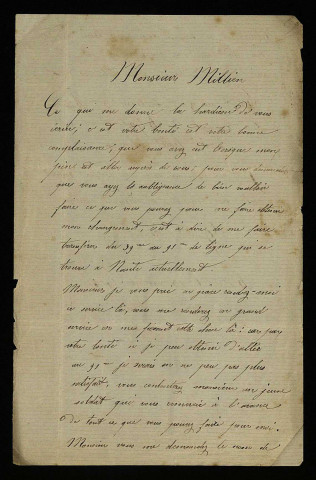 Monsieur Millien
Ce que me donne la hardiesse de vous
écrire, c'est votre bonté et votre bonne
complaisance, que vous avez eut lorsque mon
père est allez auprès de vous, pour vous demander
que vous ayez la obligeance de bien vouloir
faire ce que vous pouvez pour me faire obtenir
mon changement, c'est à dire de me faire
transférer du 39me au 91me de ligne qui se
trouve à actuellement
Monsieur je vous prie en grâce rendez-moi
ce service là, vous me rendrez un grand
service en me faisant cette chose là: car par
votre bonté si je peu obtenir d'allée
au 91me je serai on ne peu pas plus
satisfait, vous contenterez monsieur un jeune
soldat qui vous remercie à l'avance
de tout ce que vous pouvez faire pour moi.
Monsieur vous me demandez le nom de